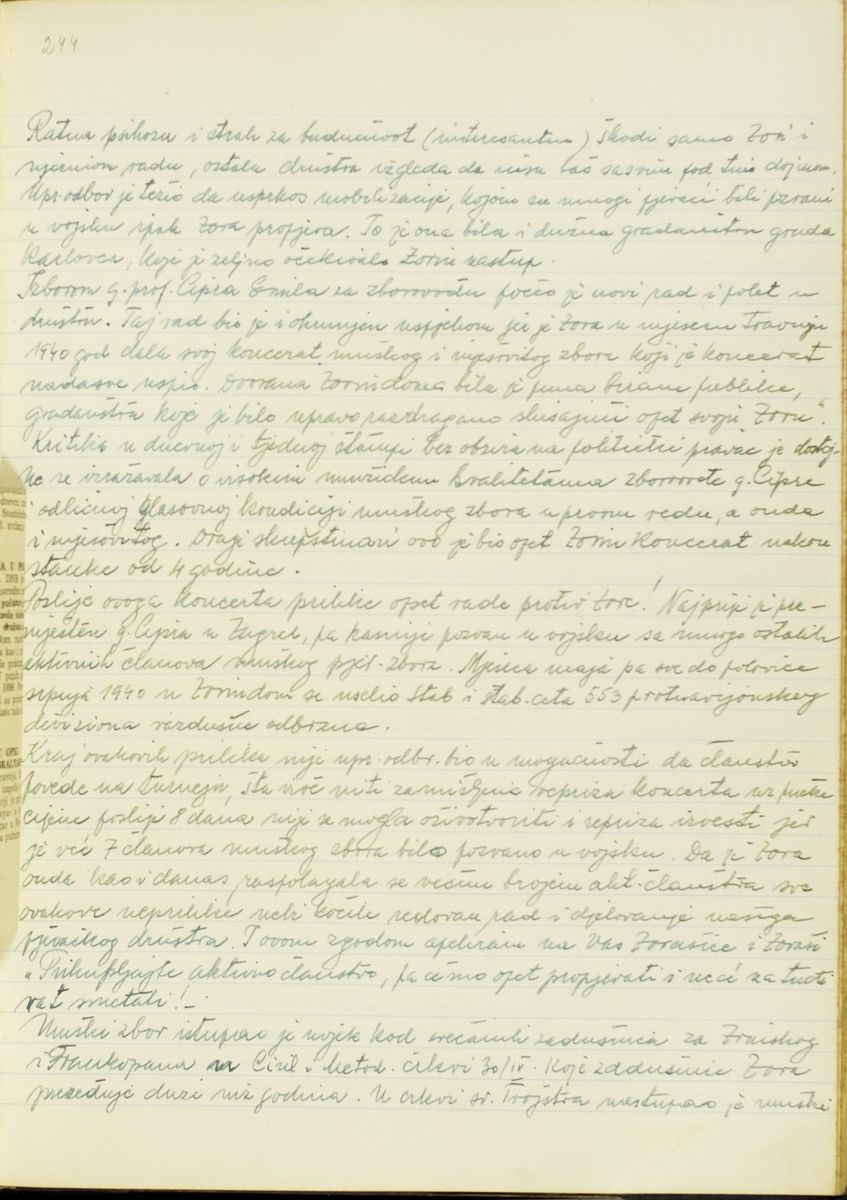 244
Ratna psihoza i strah za budućnost (interesantno) škodi samo Zori i
njezinom radu, ostala društva izgleda da nisu baš sasvim pod tim dojmom.
Upr. odbor je težio da usprkos mobilizacije, kojom su mnogi pjevači bili pozvani
u vojsku ipak Zora propjeva. To je ona bila i dužna građanstvu grada
Karlovca, koje je željno očekivalo Zorin nastup.
Izborom g. prof. Cipra Emila za zborovođu počeo je novi rad i polet u
društvu. Taj rad bio je i okrunjen uspjehom jer je Zora u mjesecu travnju
1940 god dala svoj koncerat muškog i mješovitog zbora koji je koncerat
nadasve uspio. Dvorana Zorindoma bila je puna birane publike,
građanstva koje je bilo upravo razdragano slušajući opet svoju Zoru".
Kritika u dnevnoj i tjednoj štampi bez obzira na politički pravac je dostoj-
no se izražavala o visokim muzičkim kvalitetama zborovođe g. Cipre
i odličnoj glasovnoj kondiciji muškog zbora u prvom redu, a onda
i mješovitog. Dragi skupštinari ovo je bio opet Zorin koncerat nakon
stanke od 4 godine.
Poslije ovoga koncerta prilike opet rade protiv Zore! Najprije je pre-
mješten g. Cipra u Zagreb, pa kasnije pozvan u vojsku sa mnogo ostalih
aktivnih članova muškog pjev. zbora. Mjeseca maja pa sve do polovice
srpnja 1940 u Zorindom se uselio štab i štab. četa 553 protuavijonskog
diviziona vazdušne odbrane.
Kraj ovakovih prilika nije upr. odbr. bio u mogućnosti da članstvo
povede na turneju, šta više niti zamišljena repriza koncerta uz pučke
cijene poslije 8 dana nije se mogla oživotvoriti i repriza izvesti jer
je već 7 članova muškog zbora bilo pozvano u vojsku. Da je Zora
onda kao i danas raspolagala se većim brojem akt. članstva sve
ovakove neprilike nebi kočile redovan rad i djelovanje našega
pjevačkog društva. I ovom zgodom apeliram na Vas Zorašice i Zoraši
"Prikupljajte aktivno članstvo, pa ćemo opet propjevati i neće na
rat smetati! -
Muški zbor istupao je uvjek kod svečanih zadušnica za Zrinskog
i Frankopana u Ciril. Metod. crkvi 30/IV. koje zadušnice Zora
priređuje duži niz godina. U crkvi sv. Trojstva nastupao je muški